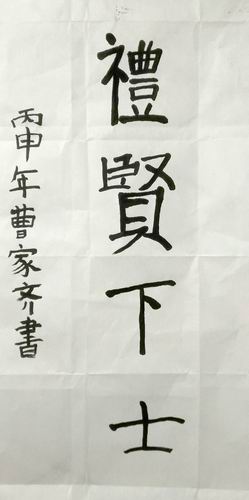 禮賢下士
丙申年曹家齐書